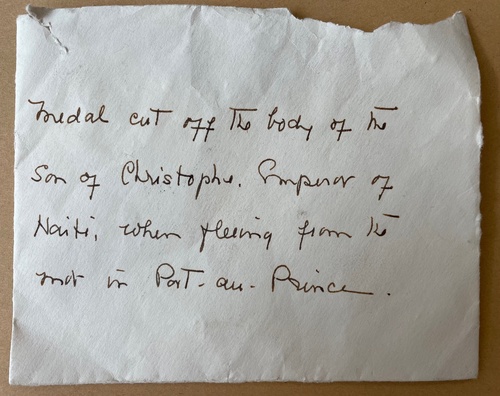 Medal cut off the body of the
Son of Christophe. Emperor of
Haiti, when fleeing from the
in Port-au-Prince.